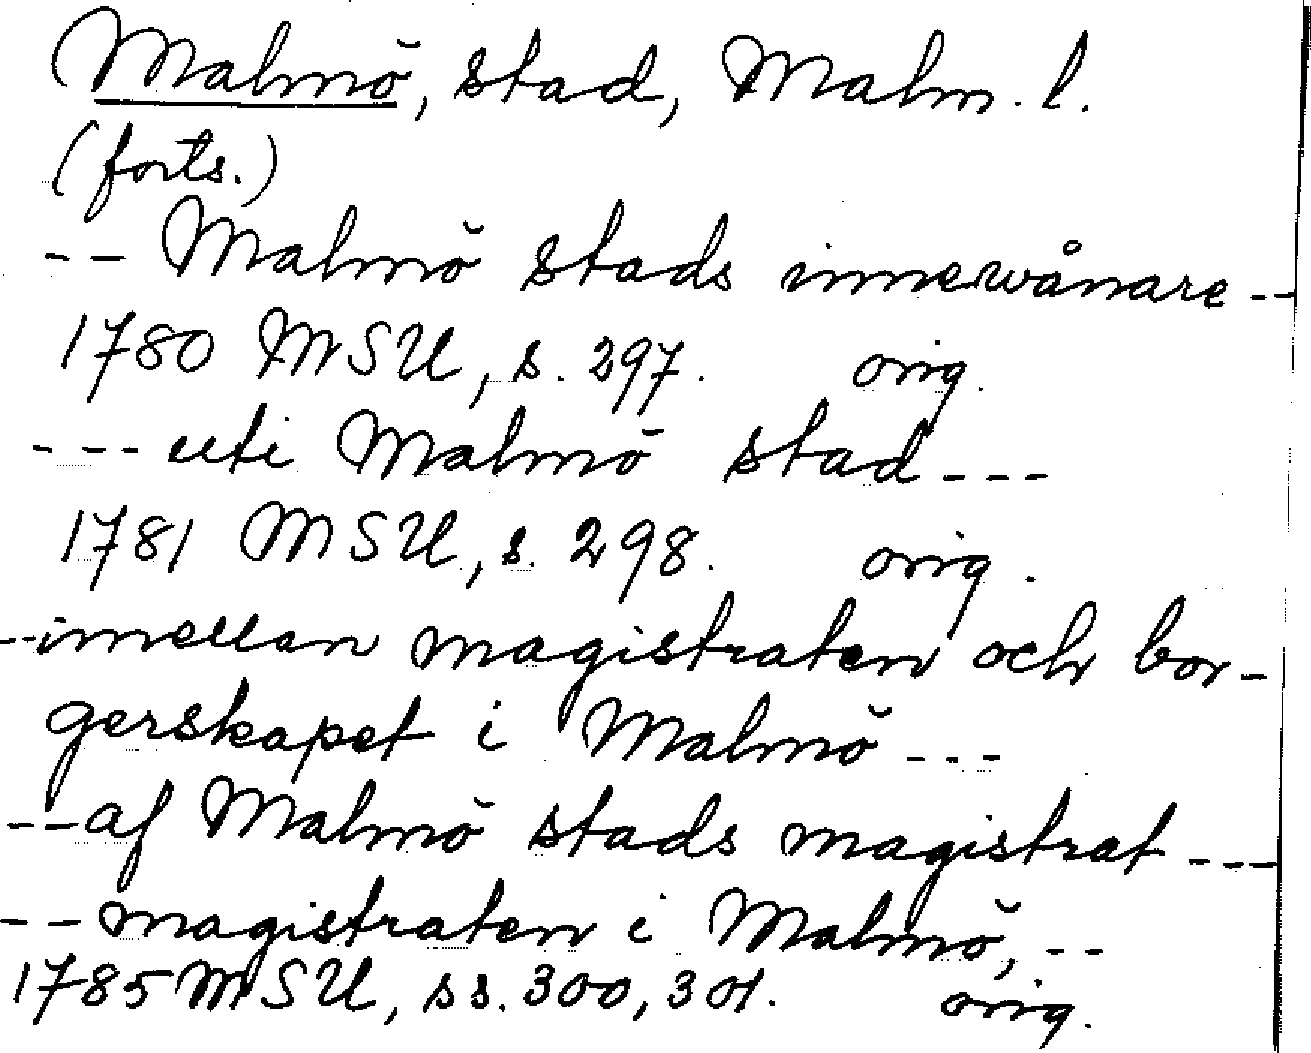 Malmö, stad, Malm. l.
(forts.)
-- Malmö stads innewånare --
1780 MSU, s. 297. orig.
--- uti Malmö stad ---
1781 MSU, s. 298. orig.
-- imellan magistraten och bor-
gerskapet i Malmö ---
-- af Malmö stads magistrat ---
-- magistraten i Malmö, --
1785 MSU, ss. 300, 301. orig.